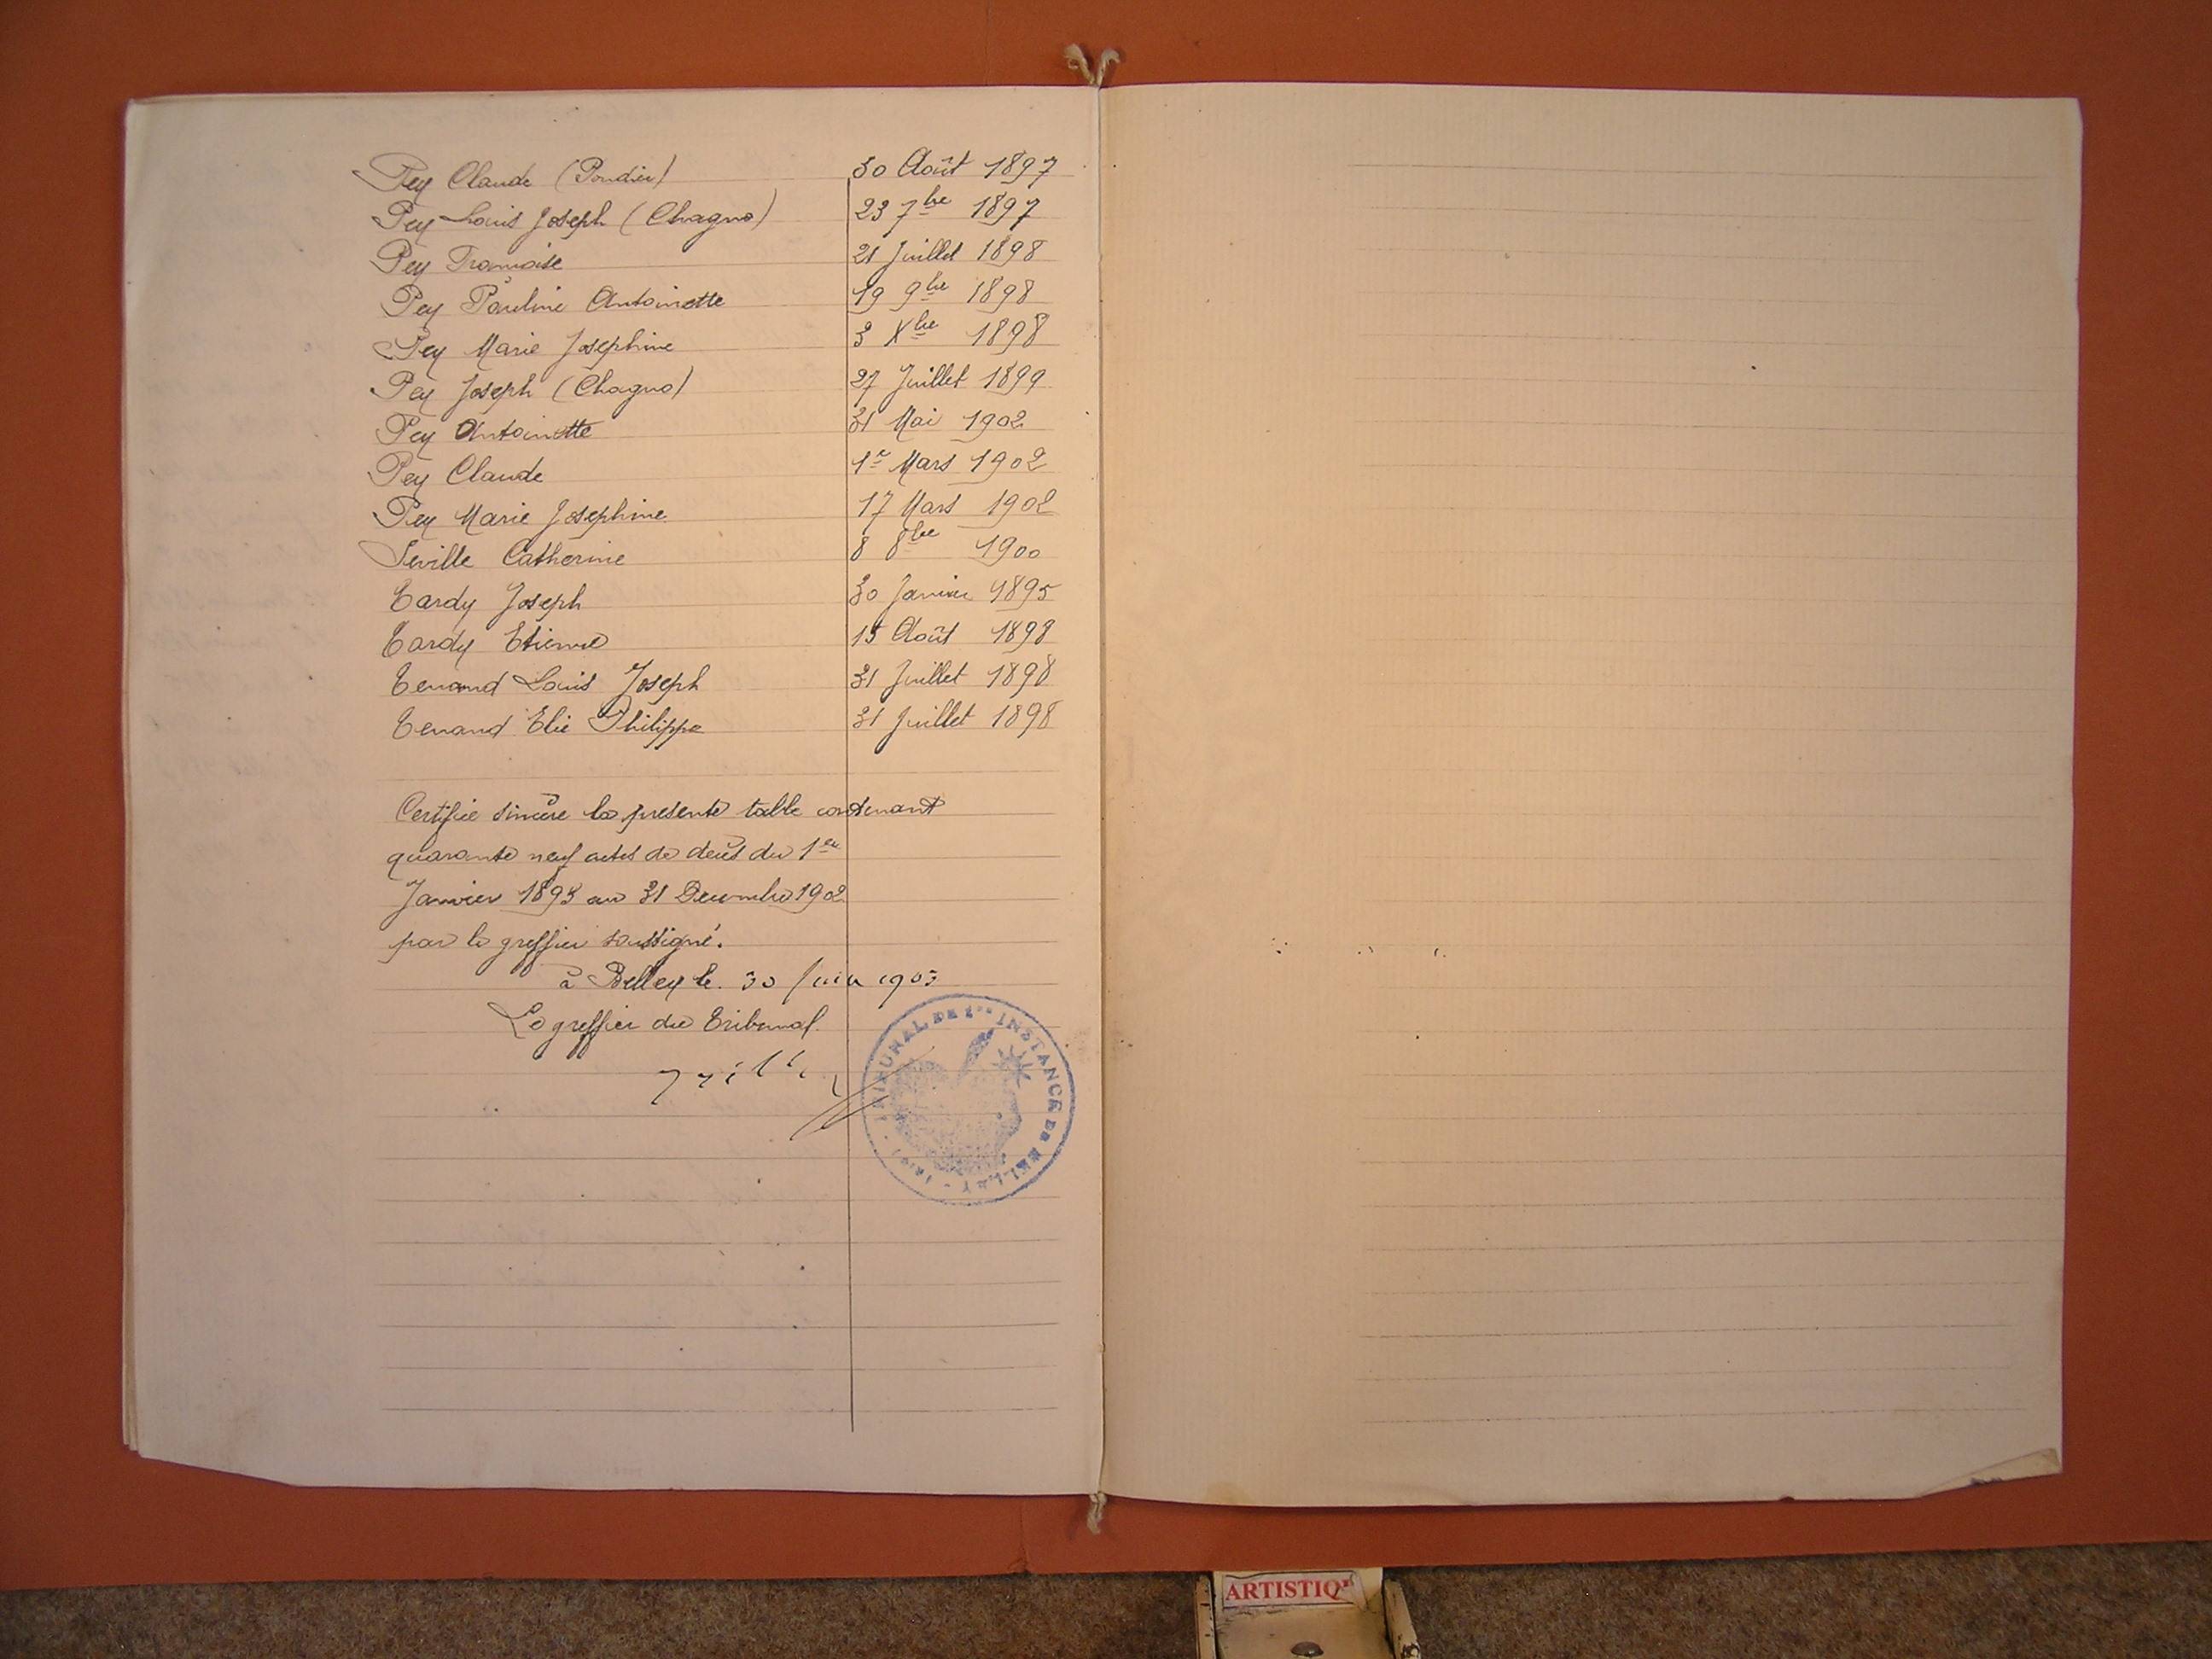 Pey Claude (Pondier) 30 Août 1897
Pey Louis Joseph (Chagno) 23 7bre 1897
Pey Francoise 21 Juillet 1898
Pey Pauline Antoinette 19 9bre 1898
Pey Marie Josephine 3 Xbre 1898
Pey Joseph (Chagno) 27 Juillet 1899
Pey Antoinette 31 Mai 1902
Pey Claude 1er Mars 1902
Pey Marie Josephine 17 Mars 1902
Seville Catherine 8 8bre 1900
Tardy Joseph 30 Janvier 1895
Tardy Etienne 15 Août 1898
Tenand Louis Joseph 31 Juillet 1898
Tenand Elie Philippe 31 Juillet 1898
Certifiée sincère la presente table contenant
quarante neuf actes de decès du 1er
Janvier 1893 au 31 Decembre 1902
par le greffier soussigné.
à Belley le. 30 Juin 1903
Le greffier du Tribunal.
TRIBUNAL DE 1re INSTANCE DE BELLEY - (AIN) -
ARTISTIQ